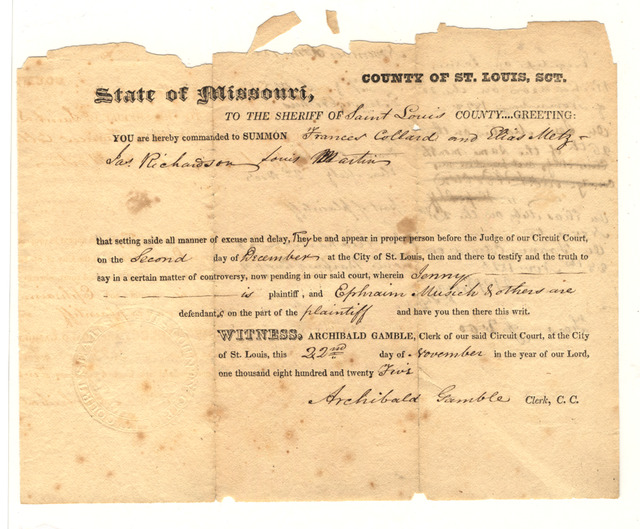 COUNTY OF ST. LOUIS, SCT.
State of Missouri,
TO THE SHERIFF OF Saint Louis COUNTY....GREETING:
YOU are hereby commanded to SUMMON Frances Collard and Elias Metz -
Jas. Richardson Louis Martin
that setting aside all manner of excuse and delay, They be and appear in proper person before the Judge of our Circuit Court,
on the Second day of December at the City of St. Louis, then and there to testify and the truth to
say in a certain matter of controversy, now pending in our said court, wherein Jenny
is plaintiff, and Ephraim Musick & others are
defendant,s on the part of the plaintiff and have you then there this writ.
WITNESS, ARCHIBALD GAMBLE, Clerk of our said Circuit Court, at the City
of St. Louis, this 22nd day of November in the year of our Lord,
one thousand eight hundred and twenty Five
Archibald Gamble Clerk, C. C.